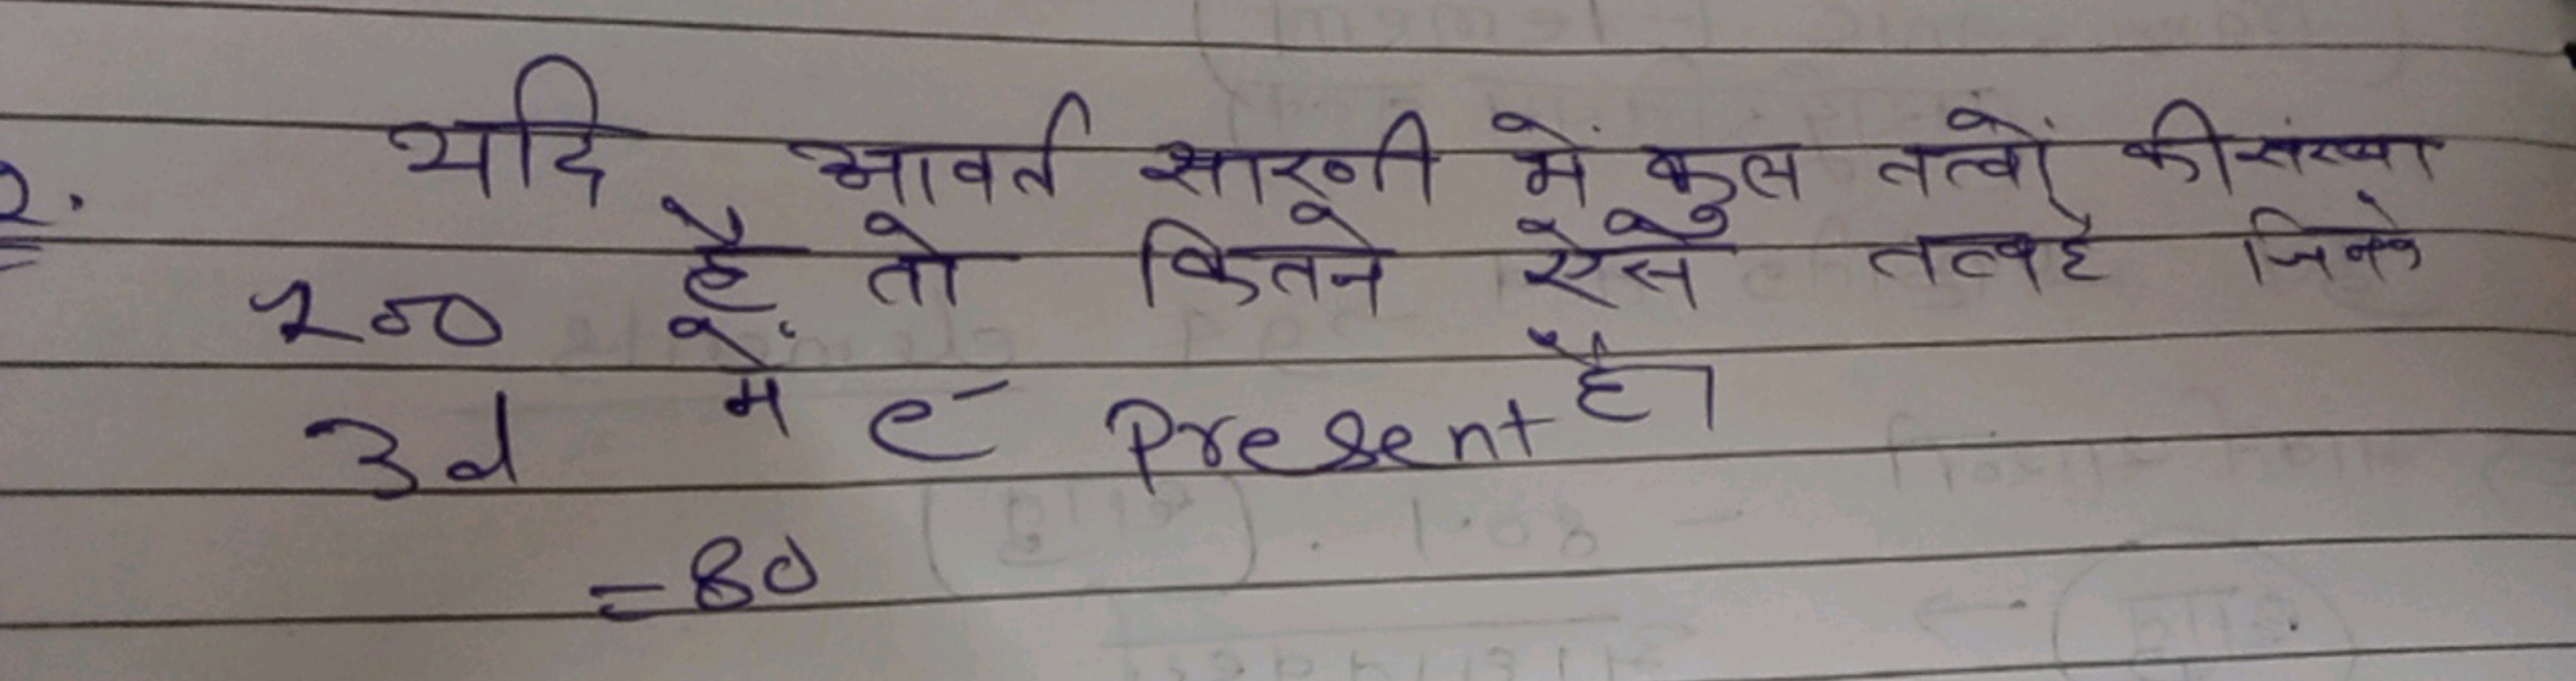 2. यदि आवर्त सारणी में कुल तत्वों की संख्या
100 है तो कितने ऐसे तत्व है जिनके
3d में e⁻ Present है।
= 80